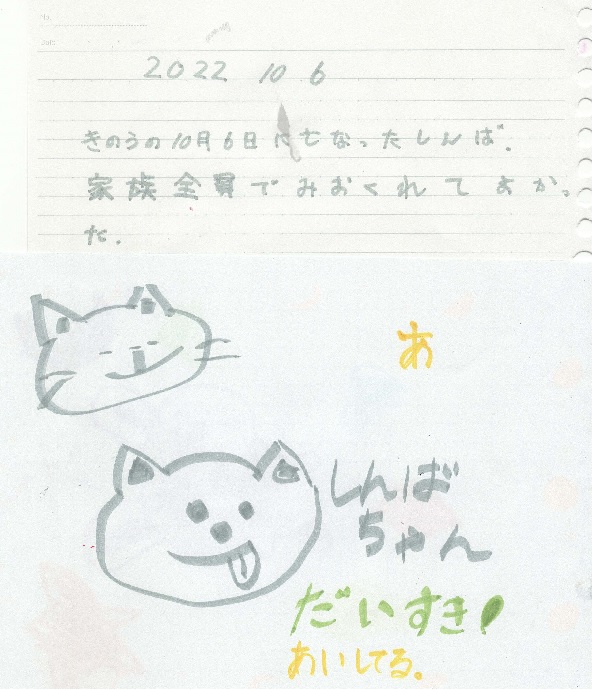 No.
Date
2022 10 6
きのうの10月6日に亡なったしんば。
家族全員でみおくれてよかっ
た.
あ
しんば
ちゃん
だいすき!
あいしてる。